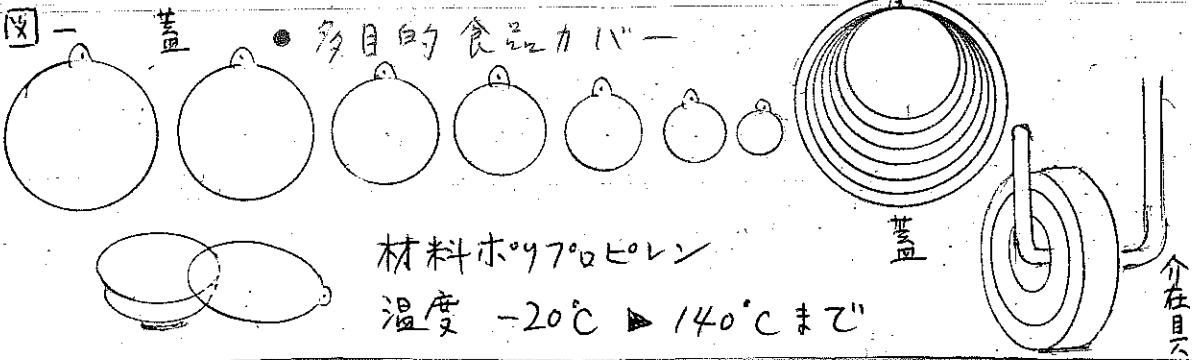 図一 蓋 ● 多目的食品カバー
蓋
材料ポリプロピレン
温度 -20℃ ▶ 140℃まで
介在具